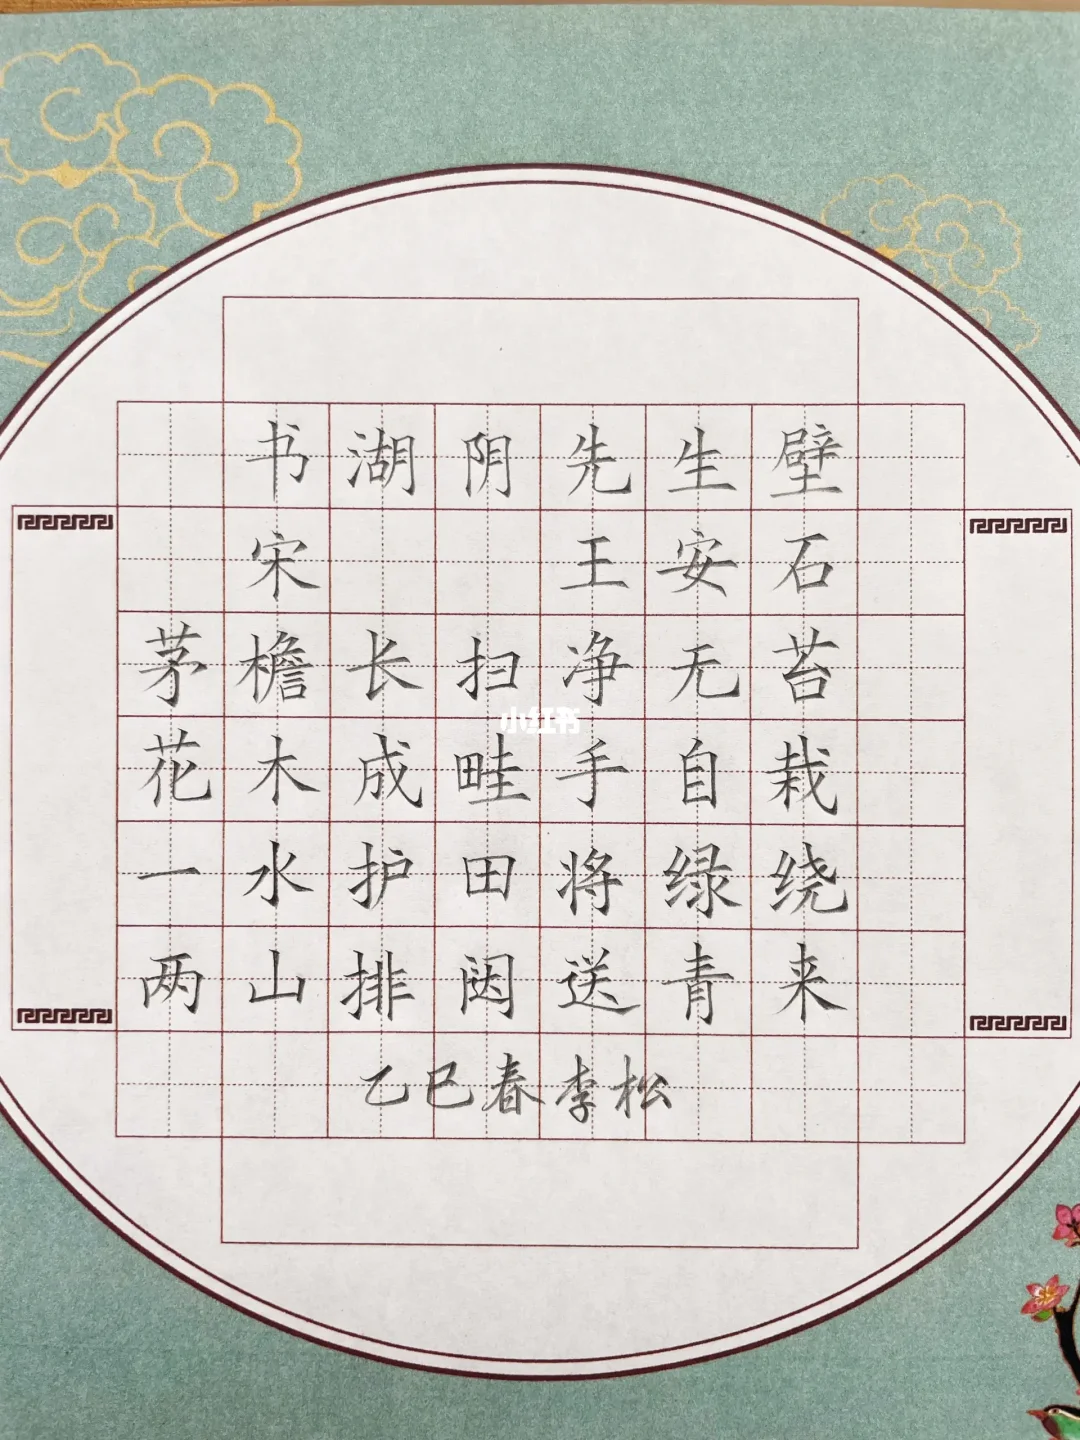 书湖阴先生壁
宋 王安石
茅檐长扫净无苔
花木成畦手自栽
一水护田将绿绕
两山排闼送青来
乙巳春李松
小红书